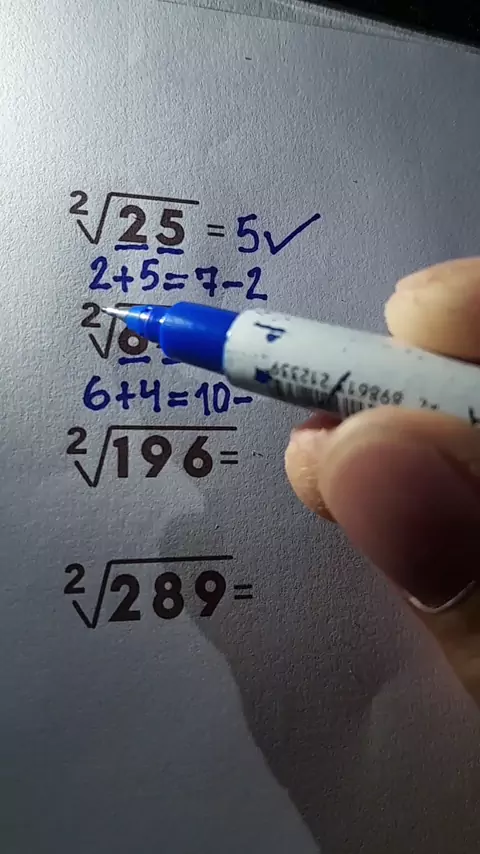 ²√25 = 5✓
2+5=7-2
²√6
6+4=10-
²√196=
²√289=
212339